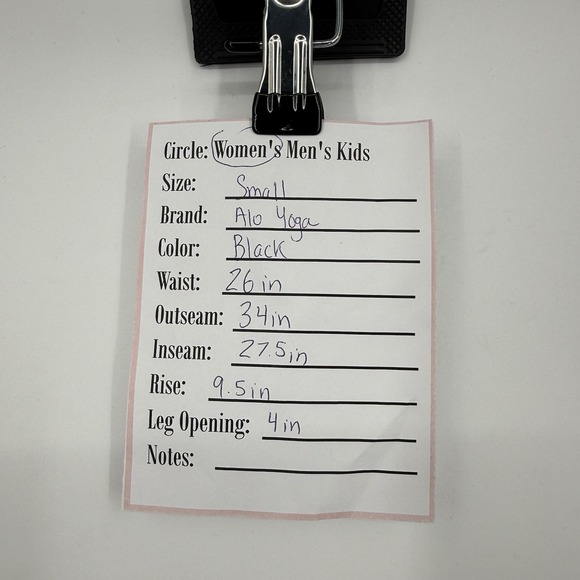 Circle: Women's Men's Kids
Size: Small
Brand: Alo Yoga
Color: Black
Waist: 26 in
Outseam: 34in
Inseam: 27.5in
Rise: 9.5in
Leg Opening: 4 in
Notes: